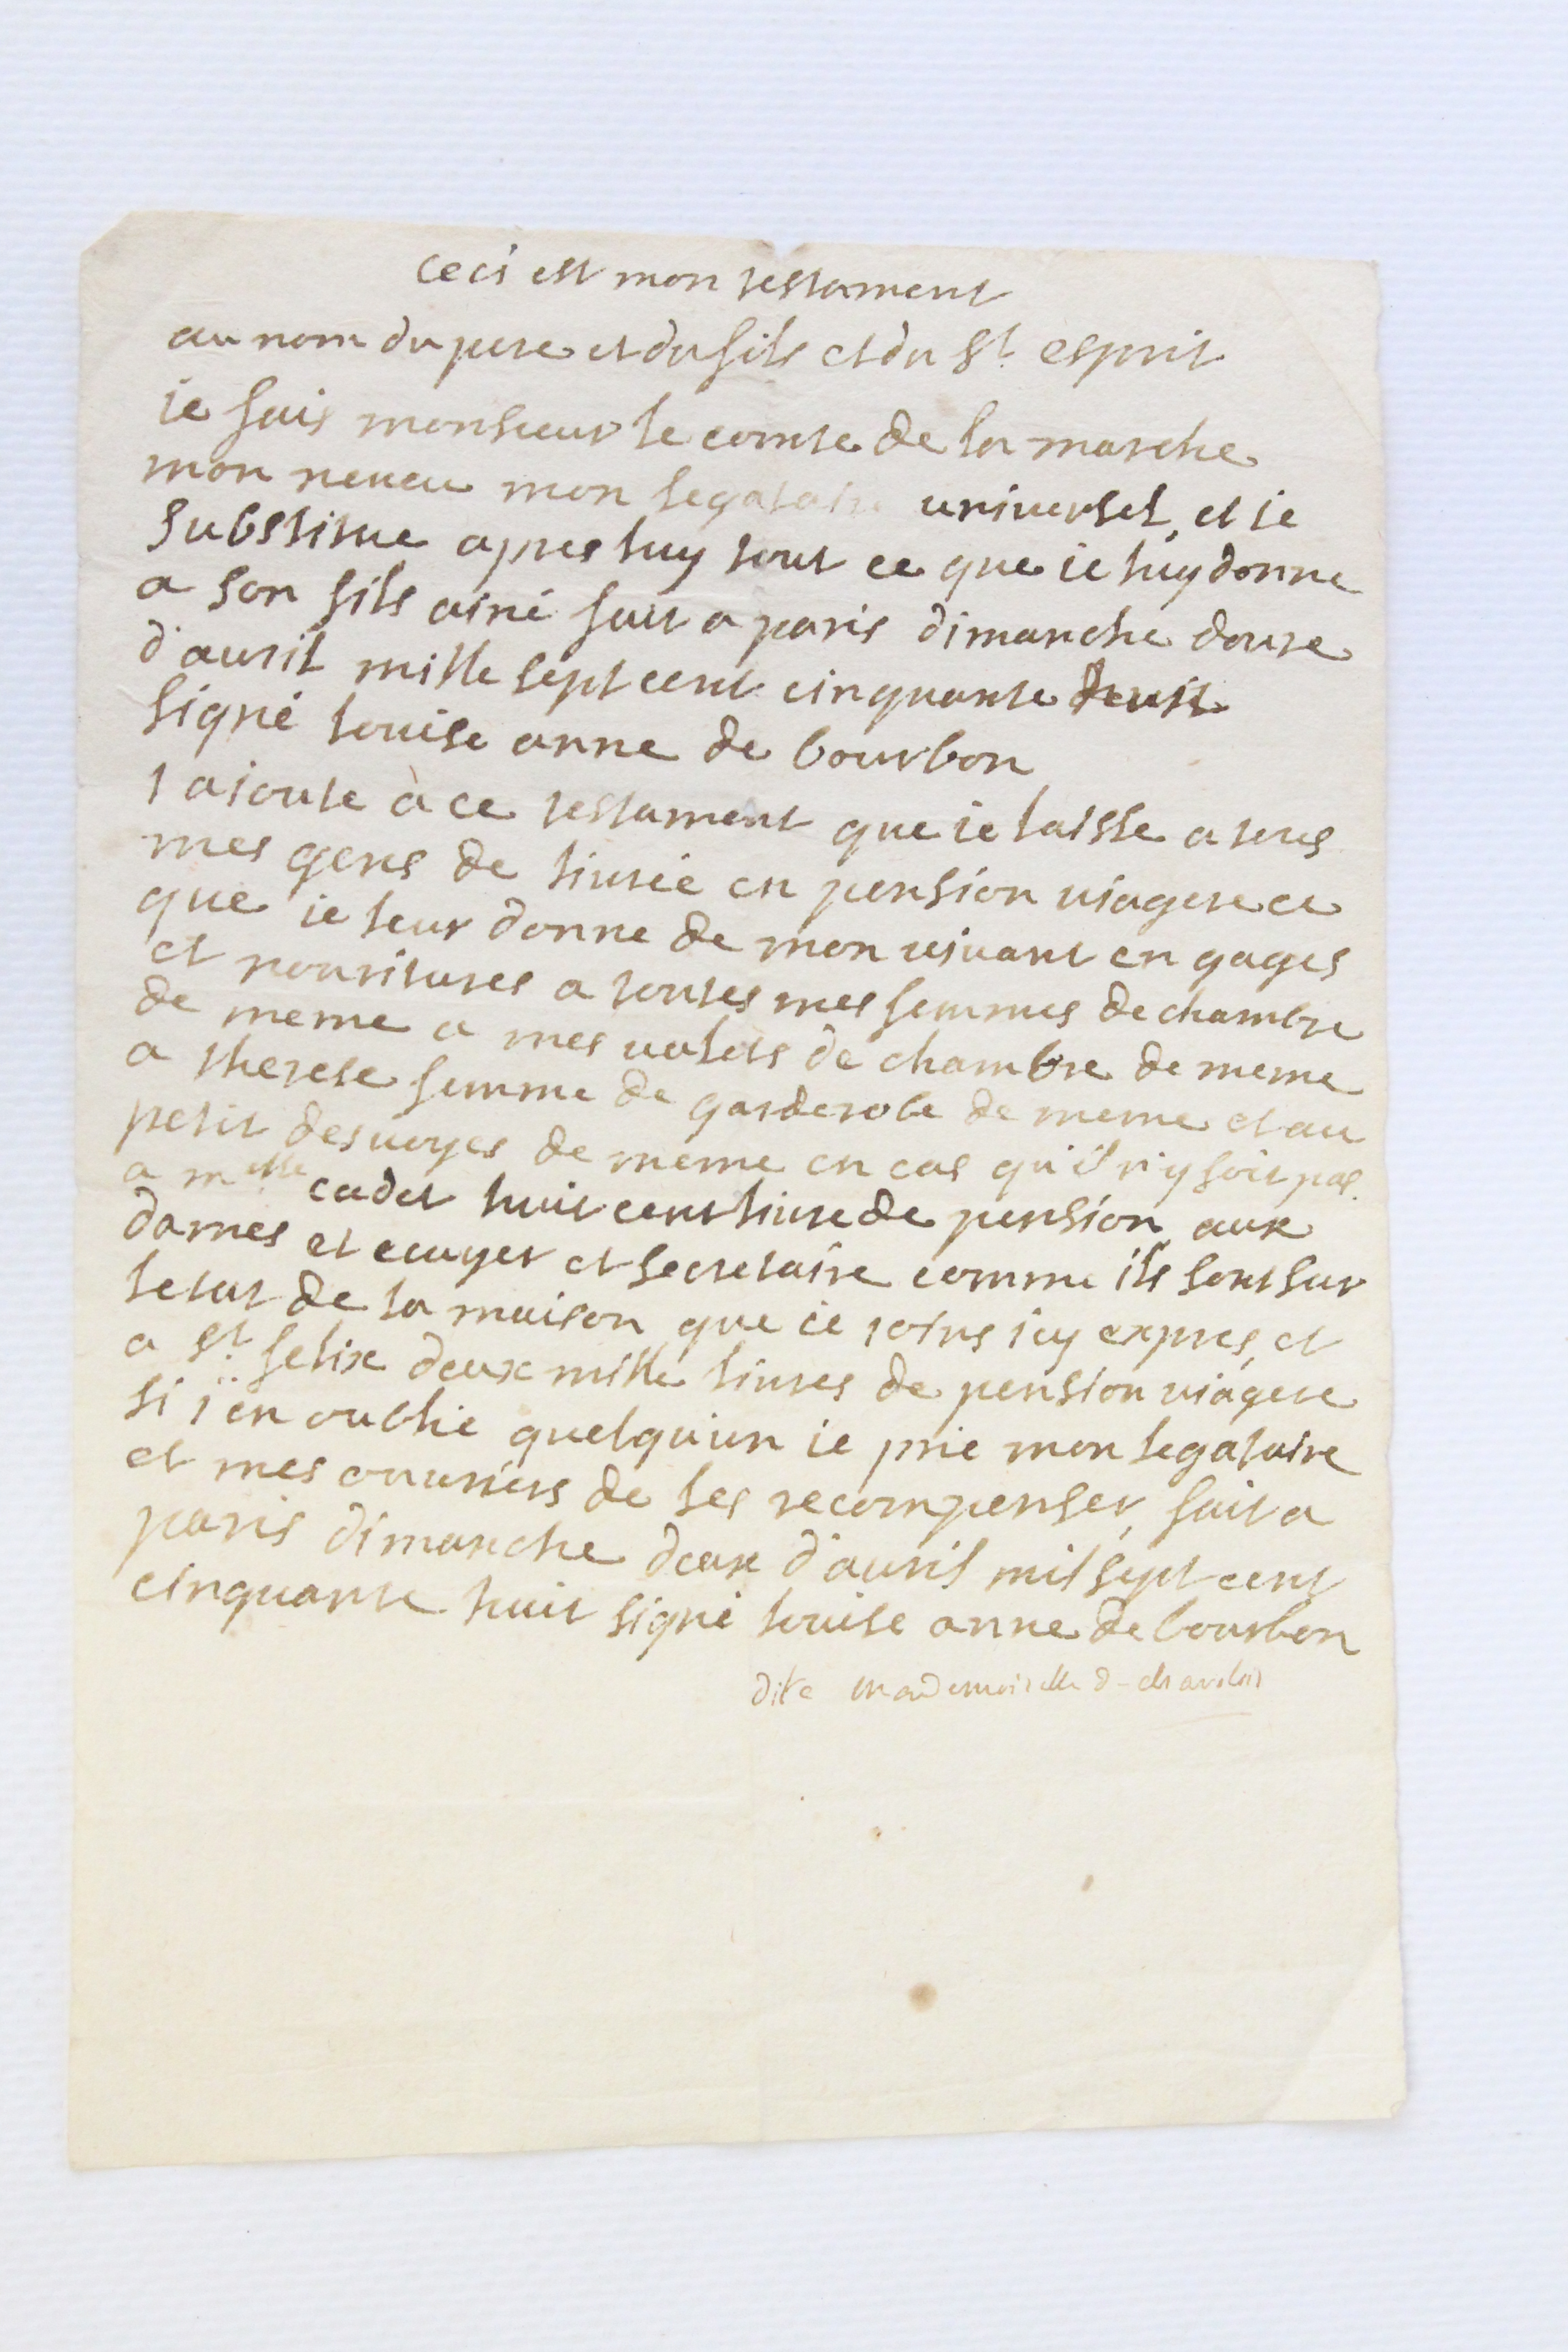 ceci est mon testament
au nom du pere et du fils et du St esprit
ie fais monsieur le comte de la marche
mon neueu mon legataire uniuersel, et ie
substitue apres luy tout ce que ie luy donne
a son fils ainé fait a paris dimanche douze
d'auril mille sept cent cinquante
signé louise anne de bourbon
j aioute à ce testament que ie laisse a tous
mes gens de liurée en pension uiagere ce
que ie leur donne de mon uiuant en gages
et nouritures a toutes mes femmes de chambre
de meme a mes ualets de chambre de meme
a therese femme de garderobe de meme et au
petit desuoyes de meme en cas qu'il n'y soit pas.
a melle cadet huit cent liure de pension, aux
dames et ecuyer et secretaire comme ils sont sur
letat de la maison que ie ioins icy expres, et
a St felix deux mille liures de pension uiagere
si j'en oublie quelqu'un ie prie mon legataire
et mes de les recompenser, fait a
paris dimanche deux d'auril mil sept cent
cinquante huit signé louise anne de bourbon
dite mademoiselle de charolois